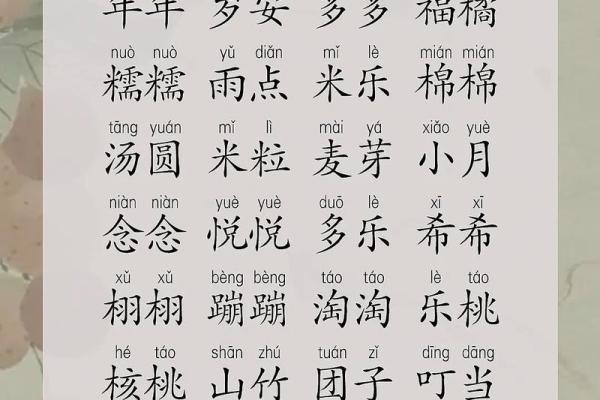 年年 岁安 多多 福橘
nuò nuò yǔ diǎn mǐ lè mián mián
糯糯 雨点 米乐 棉棉
tāng yuán mǐ lì mài yá xiǎo yuè
汤圆 米粒 麦芽 小月
niàn niàn yuè yuè duō lè xī xī
念念 悦悦 多乐 希希
xǔ xǔ bèng bèng táo táo lè táo
栩栩 蹦蹦 淘淘 乐桃
hé táo shān zhú tuán zǐ dīng dāng
核桃 山竹 团子 叮当